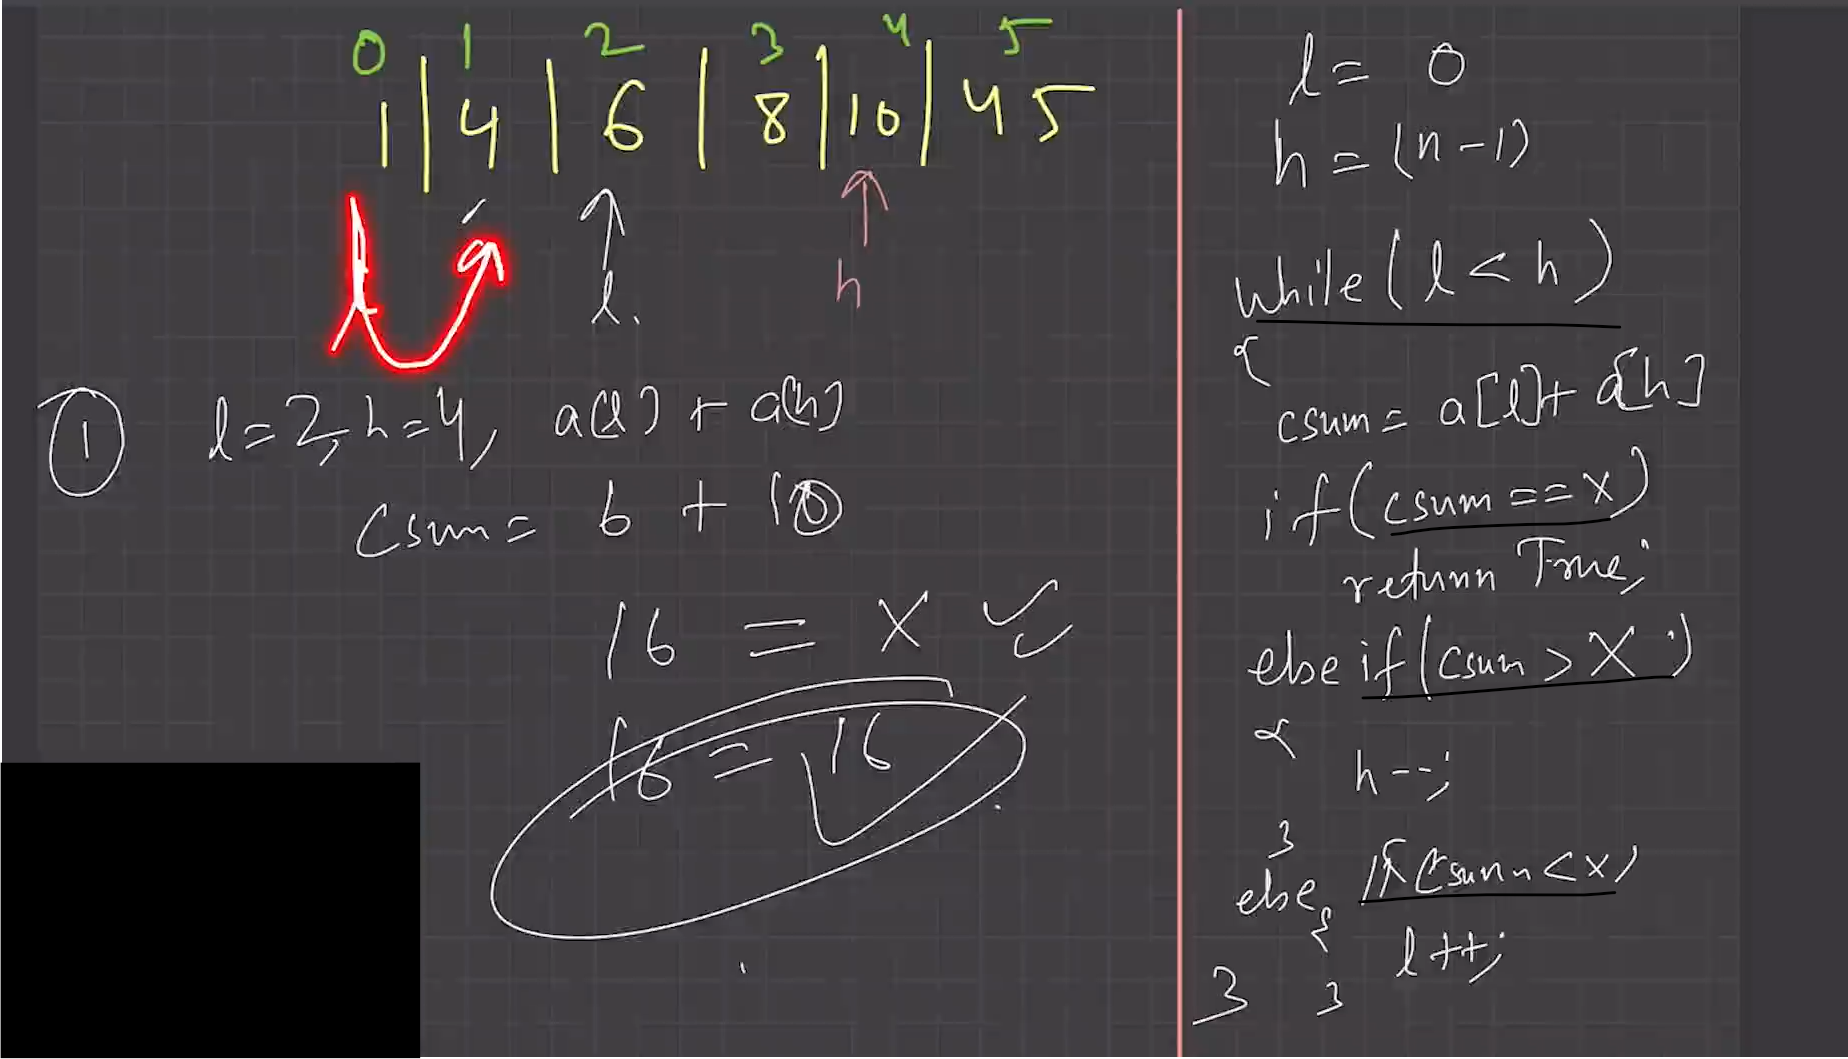 0 1 2 3 4 5
1 | 4 | 6 | 8 | 10 | 45
l l. h
① l=2, h=4, a[l] + a[h]
Csum = 6 + 10
16 = X ✓
16 = 16
l = 0
h = (n-1)
while (l < h)
{
csum = a[l] + a[h]
if (csum == x)
return True;
else if (csum > X)
{
h--;
}
else // (csum < x)
{
l++;
}
}